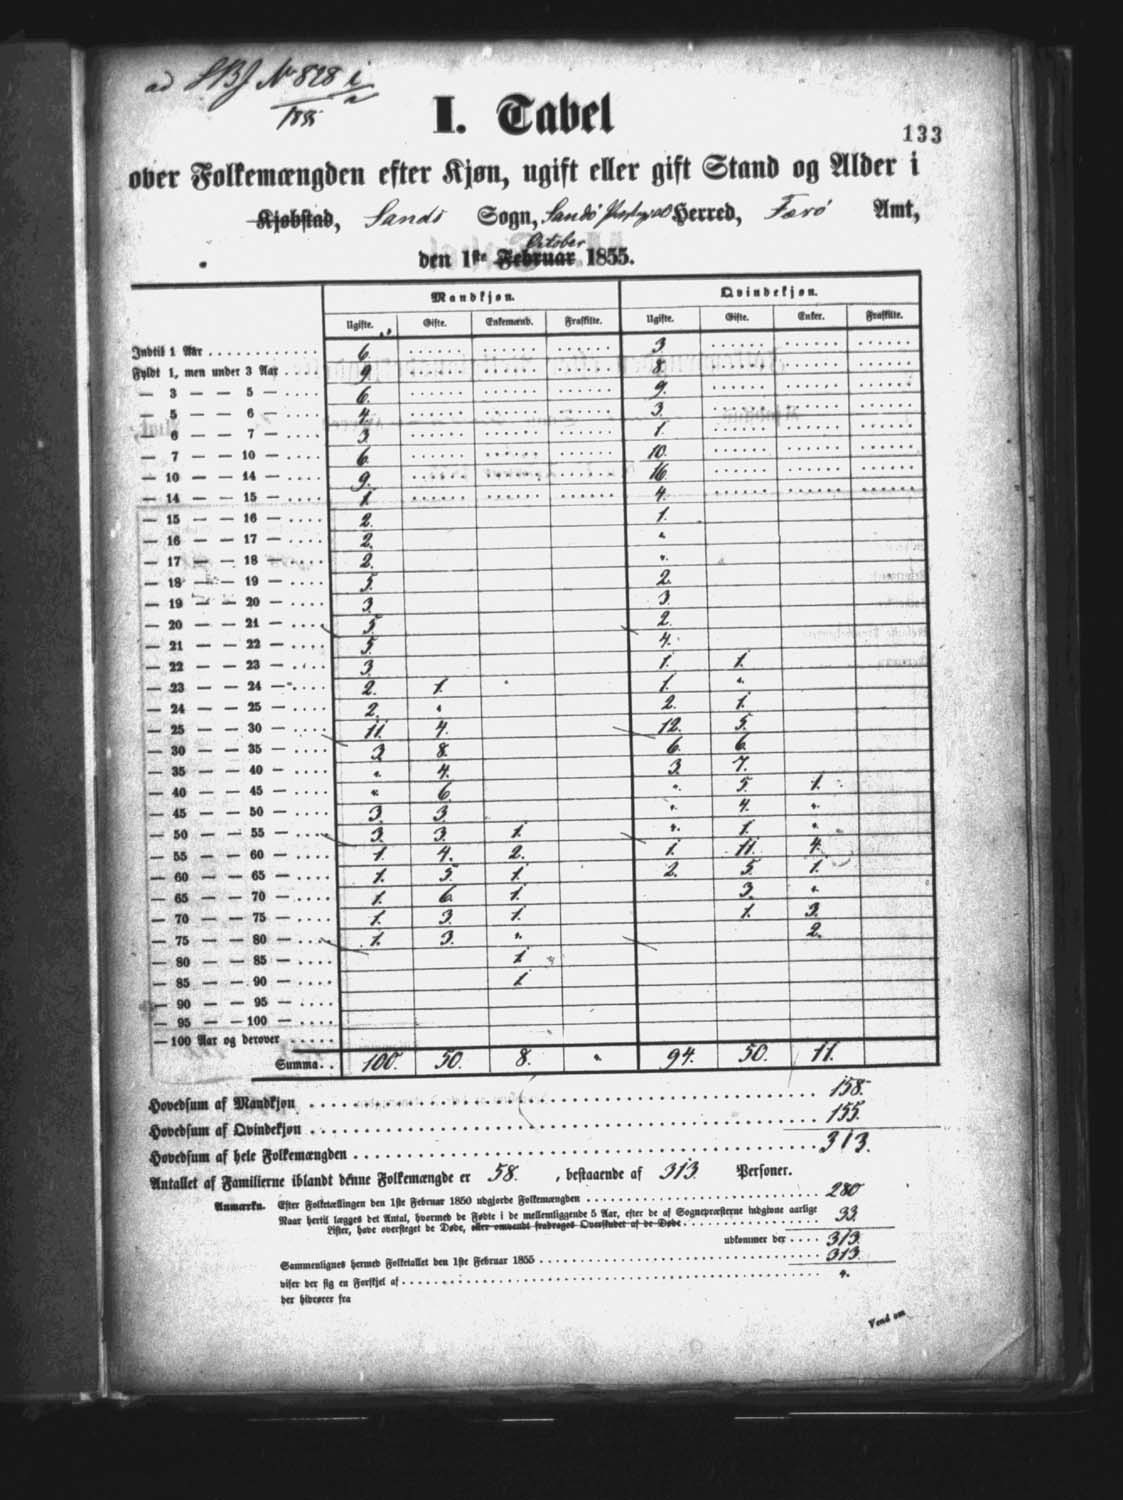 ad No 828
1855
I. Tabel
133
over Folkemængden efter Kjøn, ugift eller gift Stand og Alder i
Kjøbstad, Sands Sogn, Sandö Herred, Færö Amt,
October
den 1ste Februar 1855.
Mandkjøn. Qvindekjøn.
Ugifte. Gifte. Enkemænd. Fraskilte. Ugifte. Gifte. Enker. Fraskilte.
Indtil 1 Aar 6. 3.
Fyldt 1, men under 3 Aar 9. 8.
— 3 — — 5 — 6. 9.
— 5 — — 6 — 4. 3.
— 6 — — 7 — 3. 1.
— 7 — — 10 — 6. 10.
— 10 — — 14 — 9. 16.
— 14 — — 15 — 1. 4.
— 15 — — 16 — 2. 1.
— 16 — — 17 — 2. "
— 17 — — 18 — 2. "
— 18 — — 19 — 5. 2.
— 19 — — 20 — 3. 3.
— 20 — — 21 — 5. 2.
— 21 — — 22 — 5. 4.
— 22 — — 23 — 3. 1. 1.
— 23 — — 24 — 2. 1. 1. "
— 24 — — 25 — 2. " 2. 1.
— 25 — — 30 — 11. 4. 12. 5.
— 30 — — 35 — 3. 8. 6. 6.
— 35 — — 40 — " 4. 3. 7.
— 40 — — 45 — " 6. " 5. 1.
— 45 — — 50 — 3. 3. " 4. "
— 50 — — 55 — 3. 3. 1. " 1. "
— 55 — — 60 — 1. 4. 2. 1. 11. 4.
— 60 — — 65 — 1. 5. 1. 2. 5. 1.
— 65 — — 70 — 1. 6. 1. 3. "
— 70 — — 75 — 1. 3. 1. 1. 3.
— 75 — — 80 — 1. 3. " 2.
— 80 — — 85 — 1
— 85 — — 90 — 1
— 90 — — 95 —
— 95 — — 100 —
— 100 Aar og derover
Summa. 100. 50. 8. " 94. 50. 11.
Hovedsum af Mandkjøn 158.
Hovedsum af Qvindekjøn 155.
Hovedsum af hele Folkemængden 313.
Antallet af Familierne iblandt denne Folkemængde er 58. , bestaaende af 313 Personer.
Anmærkn. Efter Folketællingen den 1ste Februar 1850 udgjorde Folkemængden 280
Naar hertil lægges det Antal, hvormed de Fødte i de mellemliggende 5 Aar, efter de af Sognepræsterne indgivne aarlige
Lister, have oversteget de Døde, eller omvendt fradrages Overskudet af de Døde 33.
udkommer der 313.
Sammenlignes hermed Folketallet den 1ste Februar 1855 313.
viser der sig en Forskjel af "
der hidrører fra
Vend om